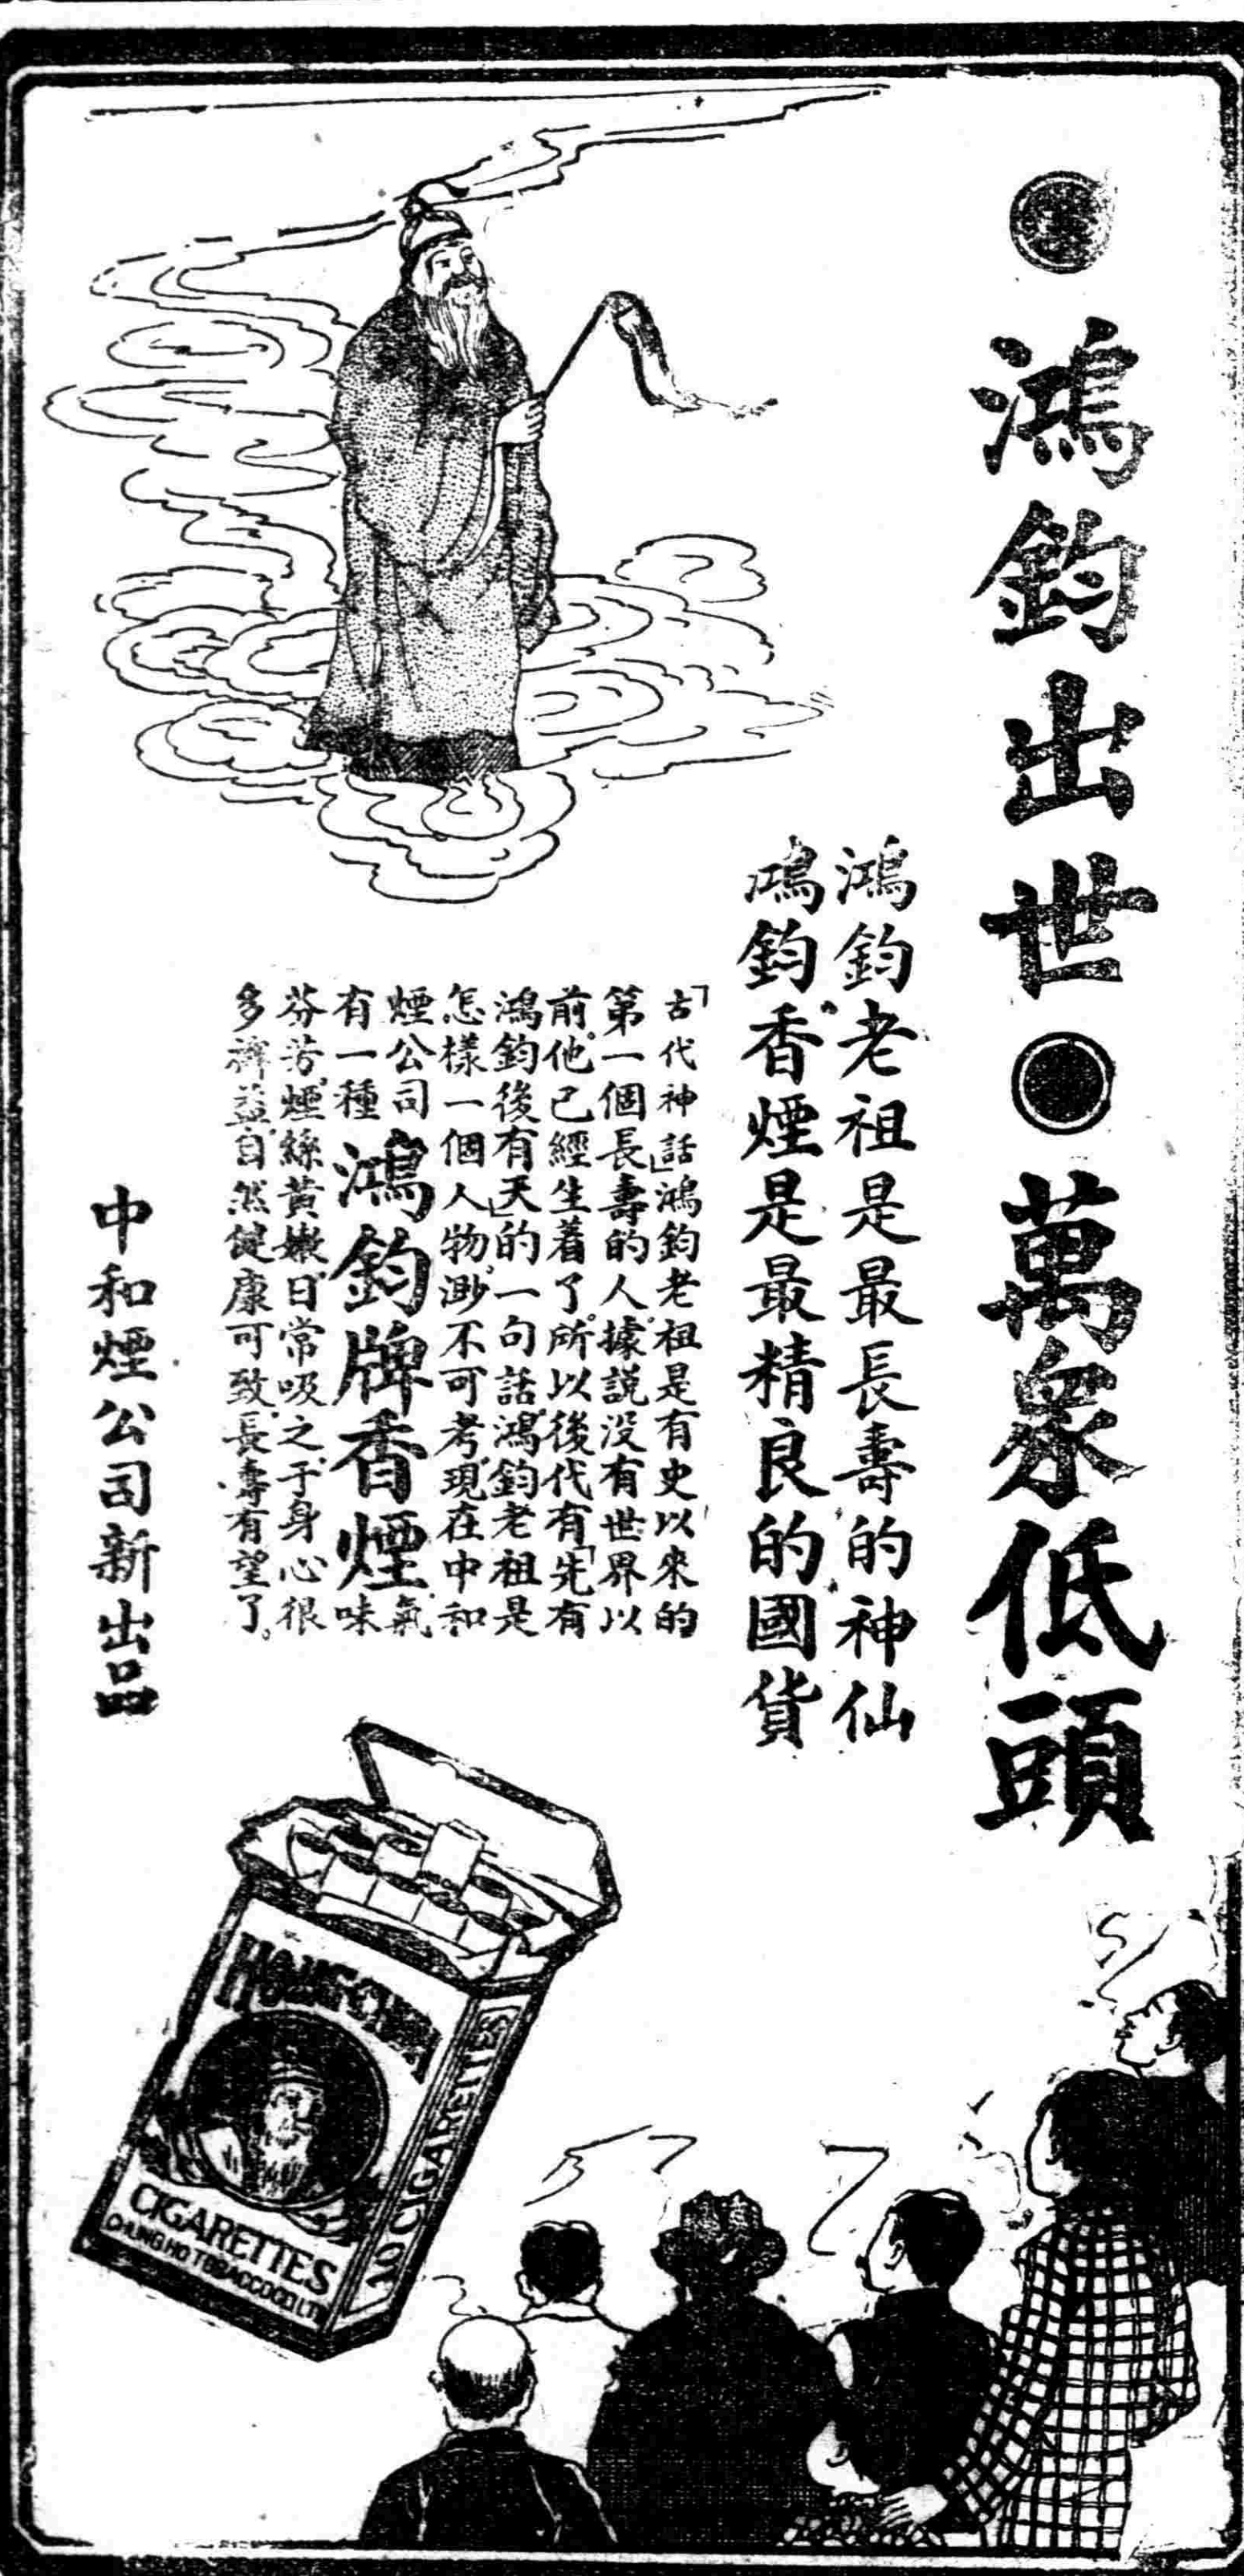 鴻鈞出世●萬衆低頭
鴻鈞老祖是最長壽的神仙
鴻鈞香煙是最精良的國貨
「古代神話」鴻鈞老祖是有史以來的
第一個長壽的人。據説没有世界以
前。他已經生着了。所以後代有「先有
鴻鈞後有天」的一句話。鴻鈞老祖是
怎樣一個人物。渺不可考。現在中和
煙公司
有一種鴻鈞牌香煙。氣味
芬芳。煙絲黄嫩。日常吸之。于身心很
多裨益。自然健康可致。長壽有望了。
中和煙公司新出品
HONG-CHUN
CIGARETTES
CHUNG HO TOBACCO CO LTD
10 CIGARETTES